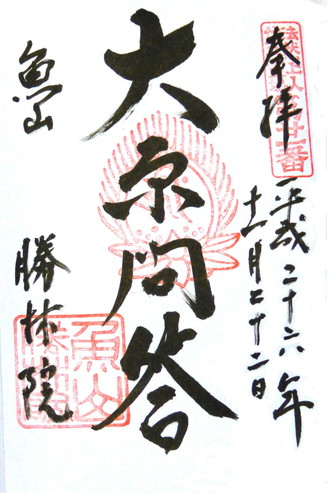 奉拝
平成二十六年
十一月二十二日
大原問答
魚山
勝林院
魚山